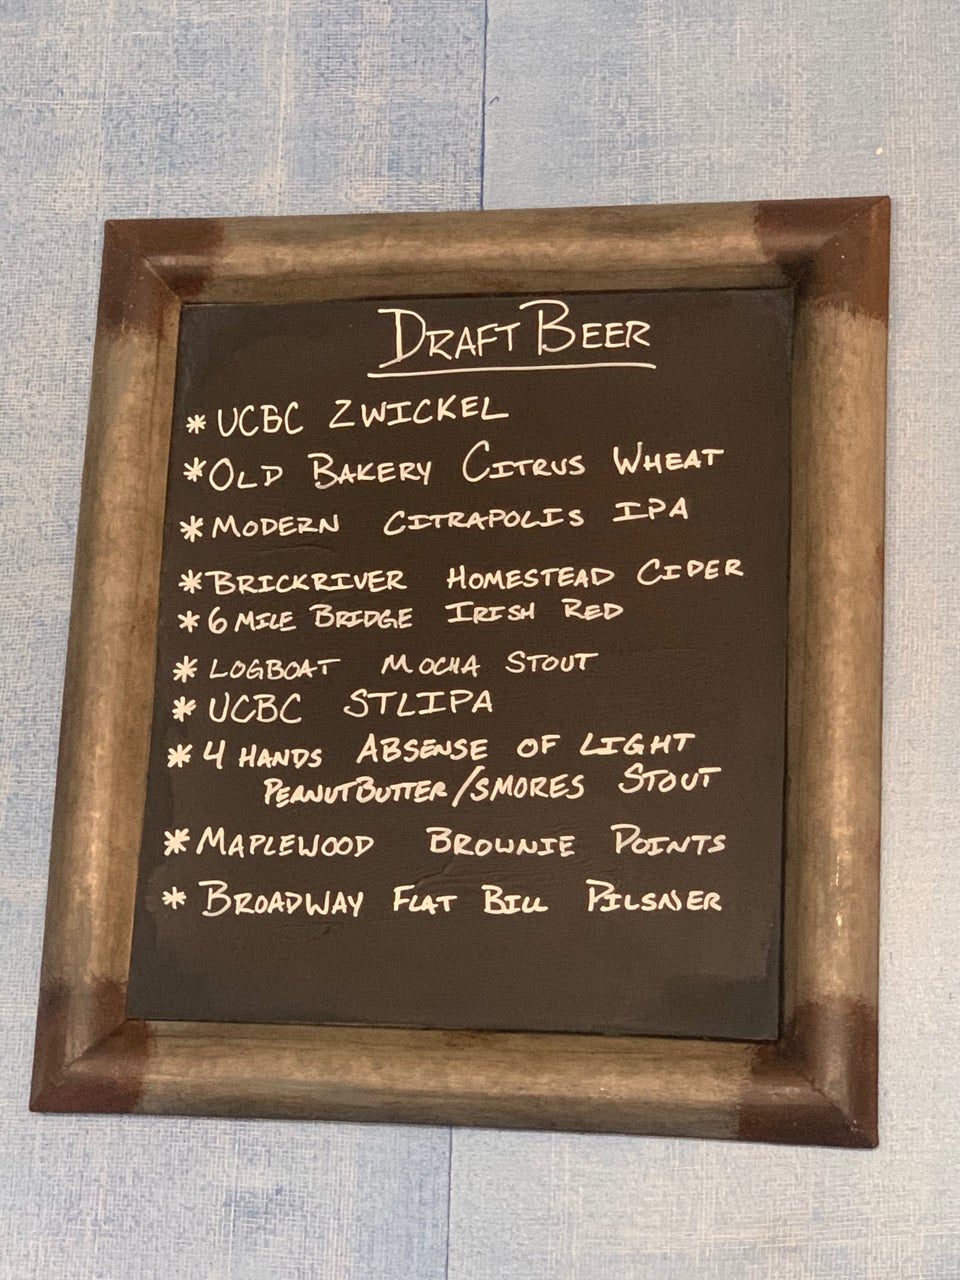 DRAFT BEER
* UCBC ZWICKEL
* OLD BAKERY CITRUS WHEAT
* MODERN CITRAPOLIS IPA
* BRICKRIVER HOMESTEAD CIDER
* 6 MILE BRIDGE IRISH RED
* LOGBOAT MOCHA STOUT
* UCBC STLIPA
* 4 HANDS ABSENSE OF LIGHT
PEANUTBUTTER/SMORES STOUT
* MAPLEWOOD BROWNIE POINTS
* BROADWAY FLAT BILL PILSNER